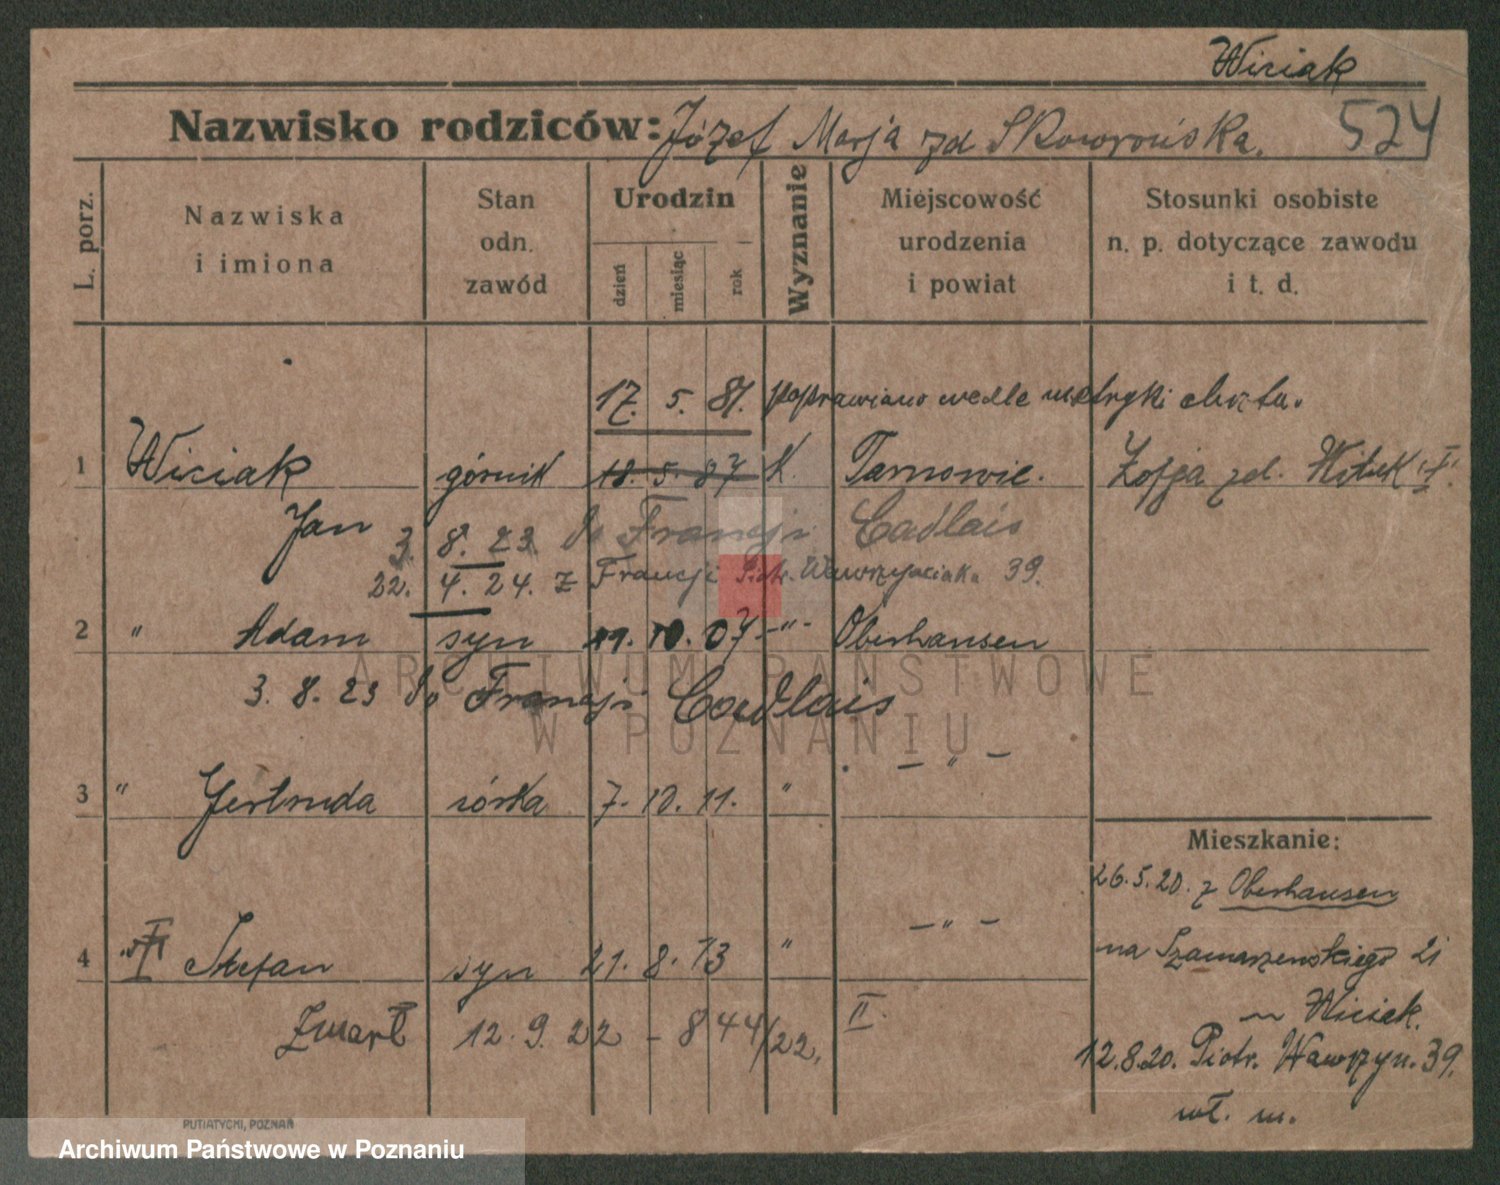 Wiciak
Nazwisko rodziców: Józef Marja zd Skowrońska. 524
L. porz. Nazwiska i imiona Stan odn. zawód Urodzin dzień miesiąc rok Wyznanie Miejscowość urodzenia i powiat Stosunki osobiste n. p. dotyczące zawodu i t. d.
17. 5. 87. poprawiano wedle metryki chrztu.
1 Wiciak górnik 18. 5. 87 K. Tarnowie. Zofja zd. Witek "I".
Jan 3. 8. 23 do Francji Cadlais
22. 4. 24. z Francji Piotr. Wawrzyniaka 39.
2 " Adam syn 19. 10. 07. -"- Oberhausen
3. 8. 23 do Francji Cadlais
3 " Gertruda córka 7. 10. 11. " - " -
Mieszkanie:
26. 5. 20. z Oberhausen
4 " Stefan syn 21. 8. 13 " - " -
na Szamarzewskiego 21
Zmarł 12. 9. 22 - 844/22. II
Wiciak.
12. 8. 20. Piotr. Wawrzyn. 39.
wł. m.
PUTIATYCKI, POZNAŃ
ARCHIWUM PAŃSTWOWE
W POZNANIU
Archiwum Państwowe w Poznaniu